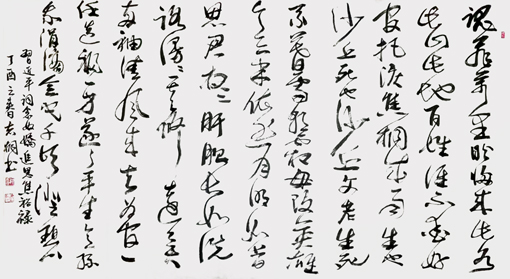 魂飛萬里盼歸來此水
此山此地百姓誰不愛好
官把淚焦桐成雨生也
沙丘死也沙丘父老生死
系暮雪朝霜毋改英雄
意氣依然月明如昔
思君夜夜肝膽長如洗
路漫漫其修遠矣
兩袖清風來去為官一
任造福一方遂了平生意綠
我涓滴會它千頃澄碧
習近平詞念奴嬌追思焦裕祿
丁酉之春書